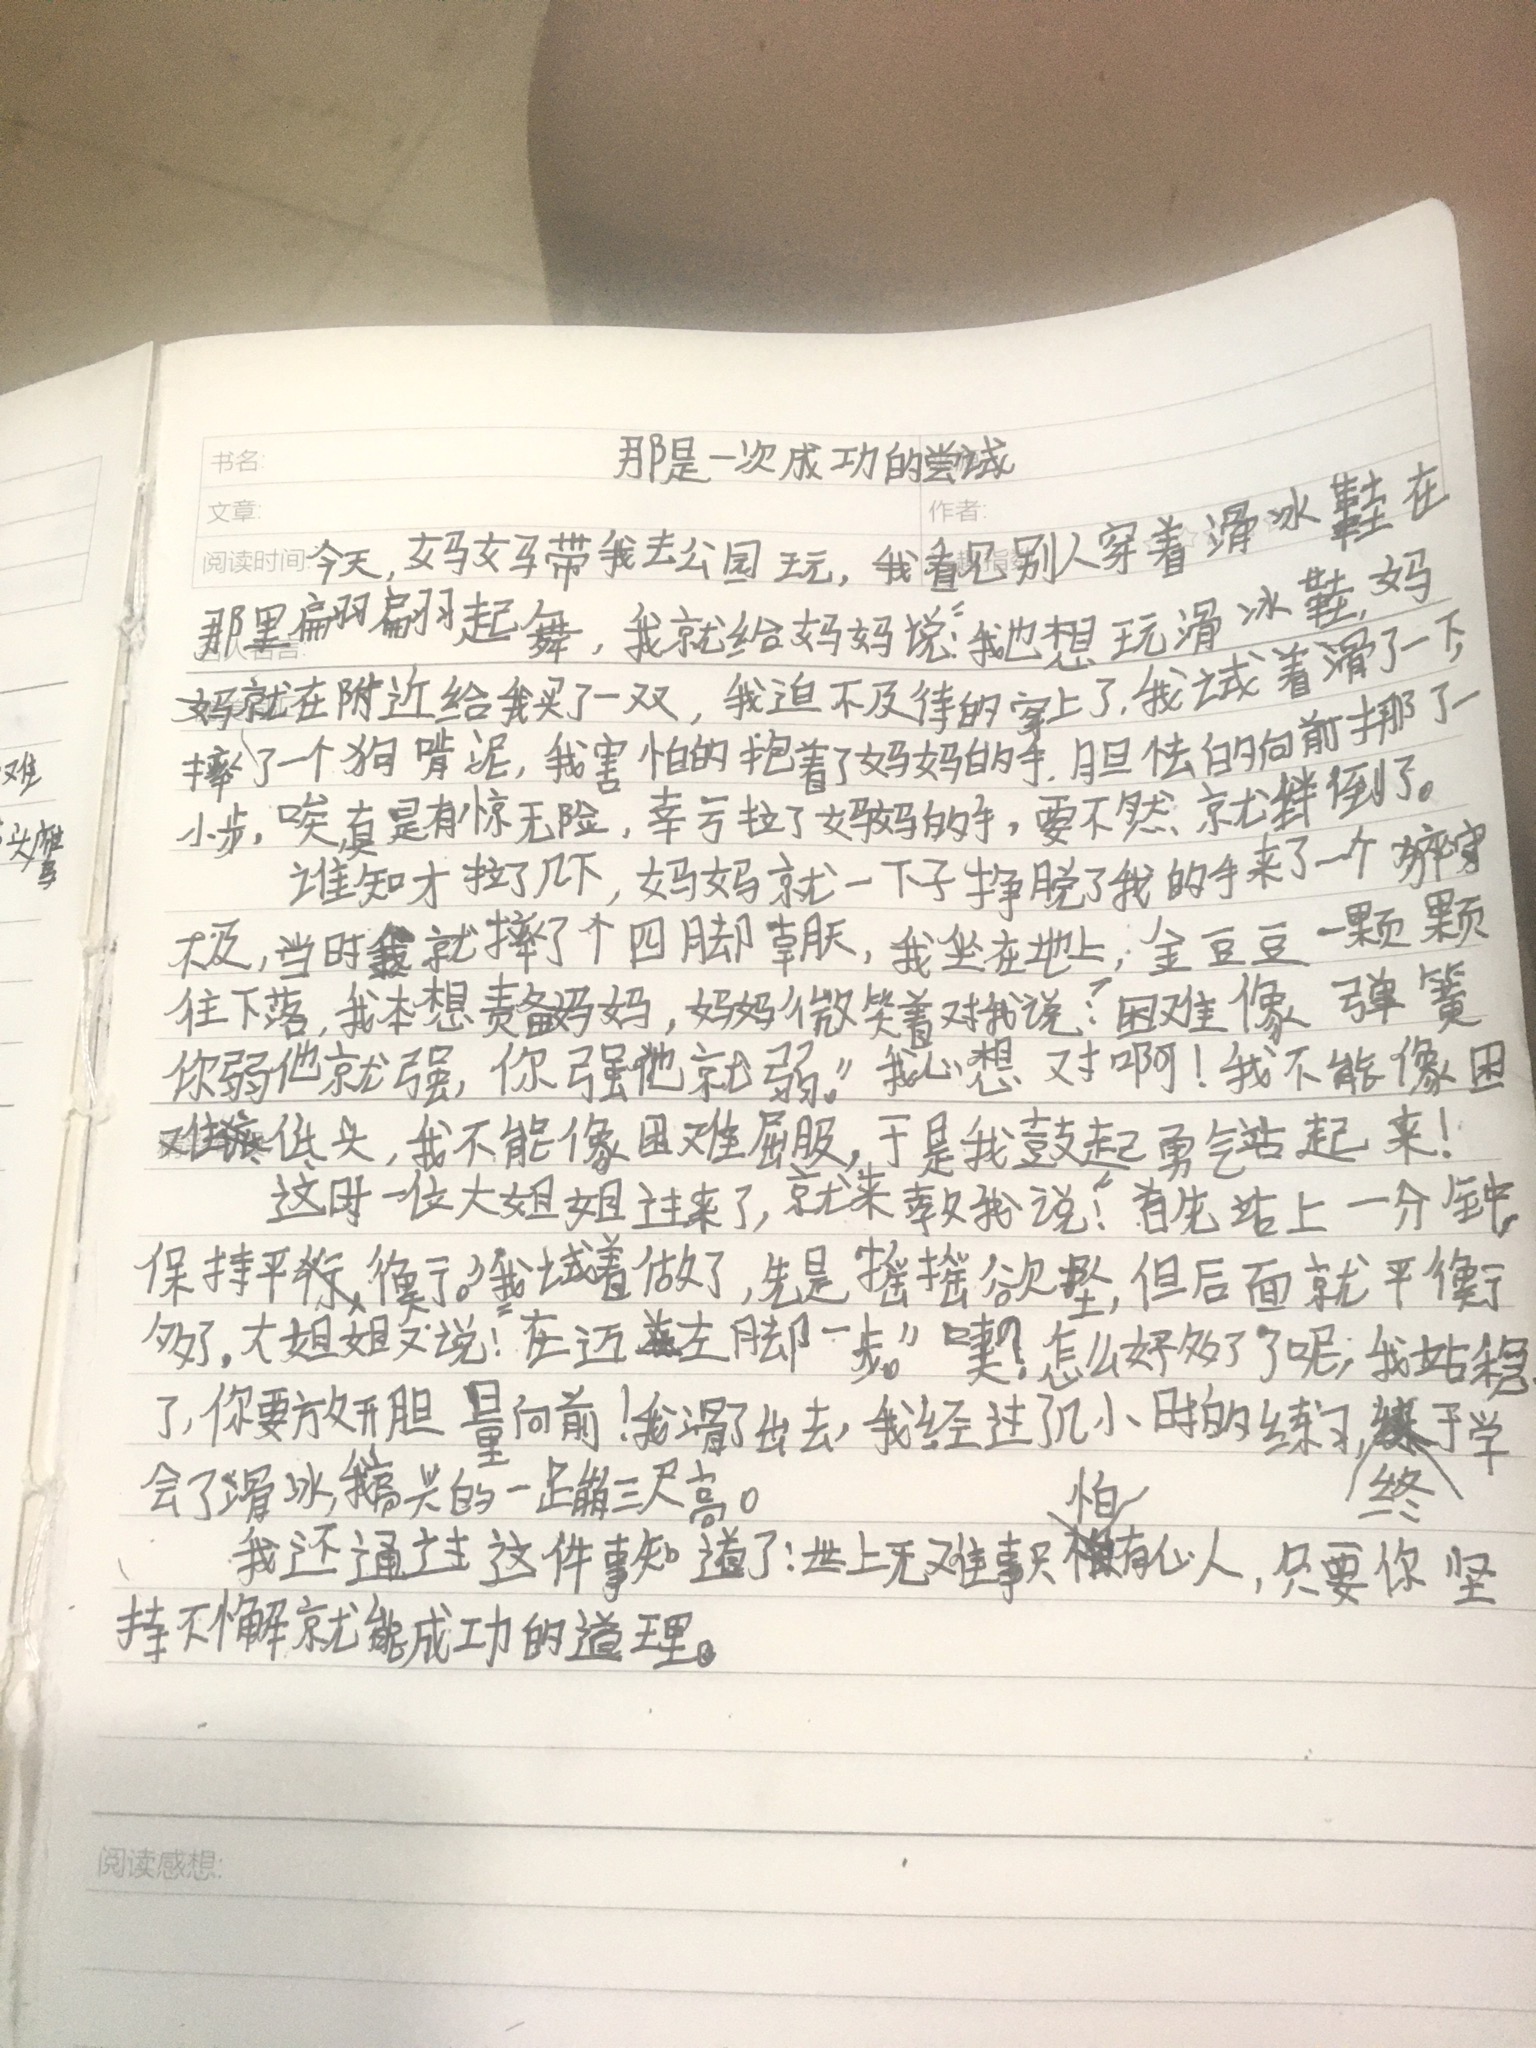 那是一次成功的尝试
书名:
文章:
作者:
阅读时间
今天,妈妈带我去公园玩,我看见别人穿着滑冰鞋在
那里翩翩起舞,我就给妈妈说:“我也想玩滑冰鞋,妈
妈就在附近给我买了一双,我迫不及待的穿上了,我试着滑了一下,
摔了一个狗啃泥,我害怕的抱着了妈妈的手.胆怯的向前挪了一
小步,唉真是有惊无险,幸亏拉了妈妈的手,要不然、就绊倒了。
谁知才拉了几下,妈妈就一下子挣脱了我的手来了一个
当时我就摔了个四脚朝天,我坐在地上,金豆豆一颗颗
往下落,我本想责备妈妈,妈妈微笑着对我说:“困难像弹簧
你弱他就强,你强他就弱。”我心想对啊!我不能像困
难低头,我不能像困难屈服,于是我鼓起勇气站起来!
这时一位大姐姐过来了,就来教我说:“首先站上一分钟,
保持平衡。”我试着做了,先是摇摇欲坠,但后面就平衡
多了,大姐姐又说:“在迈左脚一步。”咦?怎么好多了了呢,我站稳
了,你要放开胆量向前!我滑了出去,我经过了几小时的练习,终于学
会了滑冰,我高兴的一足蹦三尺高。
我还通过这件事知道了:世上无难事只怕有心人,只要你坚
持不懈就能成功的道理。
阅读感想:
难